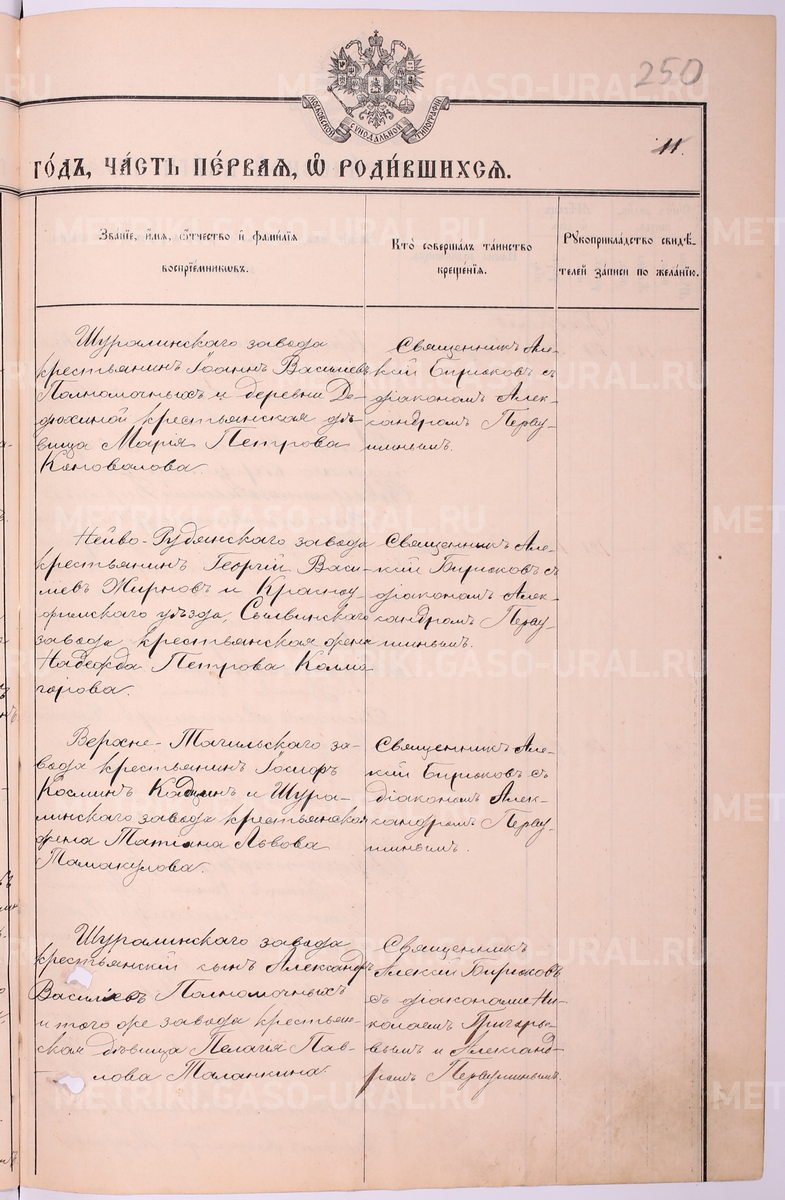 250
МОСКОВСКОЙ СѴНОДАЛЬНОЙ ТИПОГРАФІИ
11.
ГО́ДЪ, ЧА́СТЬ ПЕ́РВАЯ, Ѡ҆ РОДИ́ВШИХСЯ.
Зва́нїе, и҆́мѧ, ѻ҆́тчество и҆ фами́лїѧ
воспрїе́мниковъ.
Кто̀ соверша́лъ та́инство
креще́нїѧ.
Рꙋкоприкла́дство свидѣ́-
телей за́писи по жела́нїю.
Шуралинскаго завода
крестьянинъ Іоаннъ Васильевъ
Полномочныхъ и деревни
крестьянская дѣ-
вица Марія Петрова
Коновалова.
Священникъ Але-
ксій Бирюковъ съ
діакономъ Алек-
сандромъ Перву-
шинымъ.
Нейво-Рудянскаго завода
крестьянинъ Георгій Васи-
льевъ Жирновъ и Красно-
уфимскаго уѣзда, Сылвинскаго
завода крестьянская жена
Надежда Петрова Колмо-
горова.
Священникъ Але-
ксій Бирюковъ съ
діакономъ Алек-
сандромъ Перву-
шинымъ.
Верхне-Тагильскаго за-
вода крестьянинъ Іосифъ
Косминъ и Шура-
линскаго завода крестьянская
жена Татіана Львова
Тамакулова.
Священникъ Але-
ксій Бирюковъ съ
діакономъ Алек-
сандромъ Перву-
шинымъ.
Шуралинскаго завода
крестьянскій сынъ Александръ
Васильевъ Полномочныхъ
и того же завода крестьян-
ская дѣвица Пелагія Пав-
лова Таланкина.
Священникъ
Алексій Бирюковъ
съ діаконами Ни-
колаемъ Григорье-
вымъ и Александ-
ромъ Первушинымъ.
METRIKI.GASO-URAL.RU